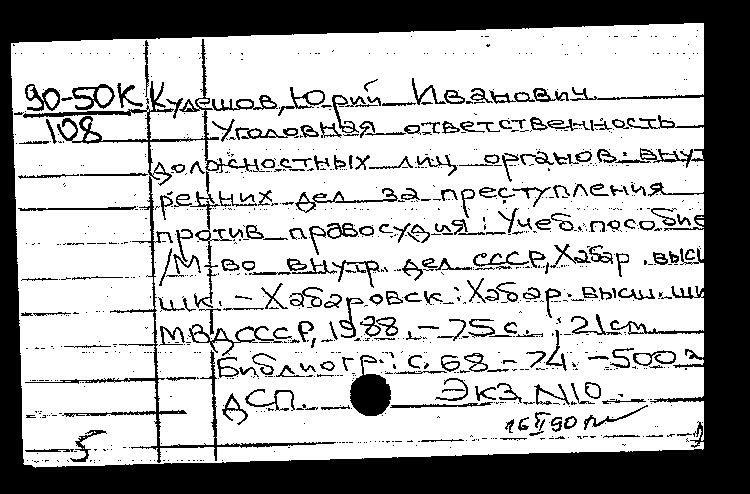 90-50К Кулешов, Юрий Иванович.
108 Уголовная ответственность
должностных лиц органов внут
ренних дел за преступления
против правосудия : Учеб. пособие
/М-во внутр. дел СССР, Хабар. высш
шк. – Хабаровск : Хабар. высш. шк
МВД СССР, 1988. – 75 с. ; 21 см.
Библиогр.: с. 68 – 74. – 500 э
ДСП. Экз N10.
16 II 90
5